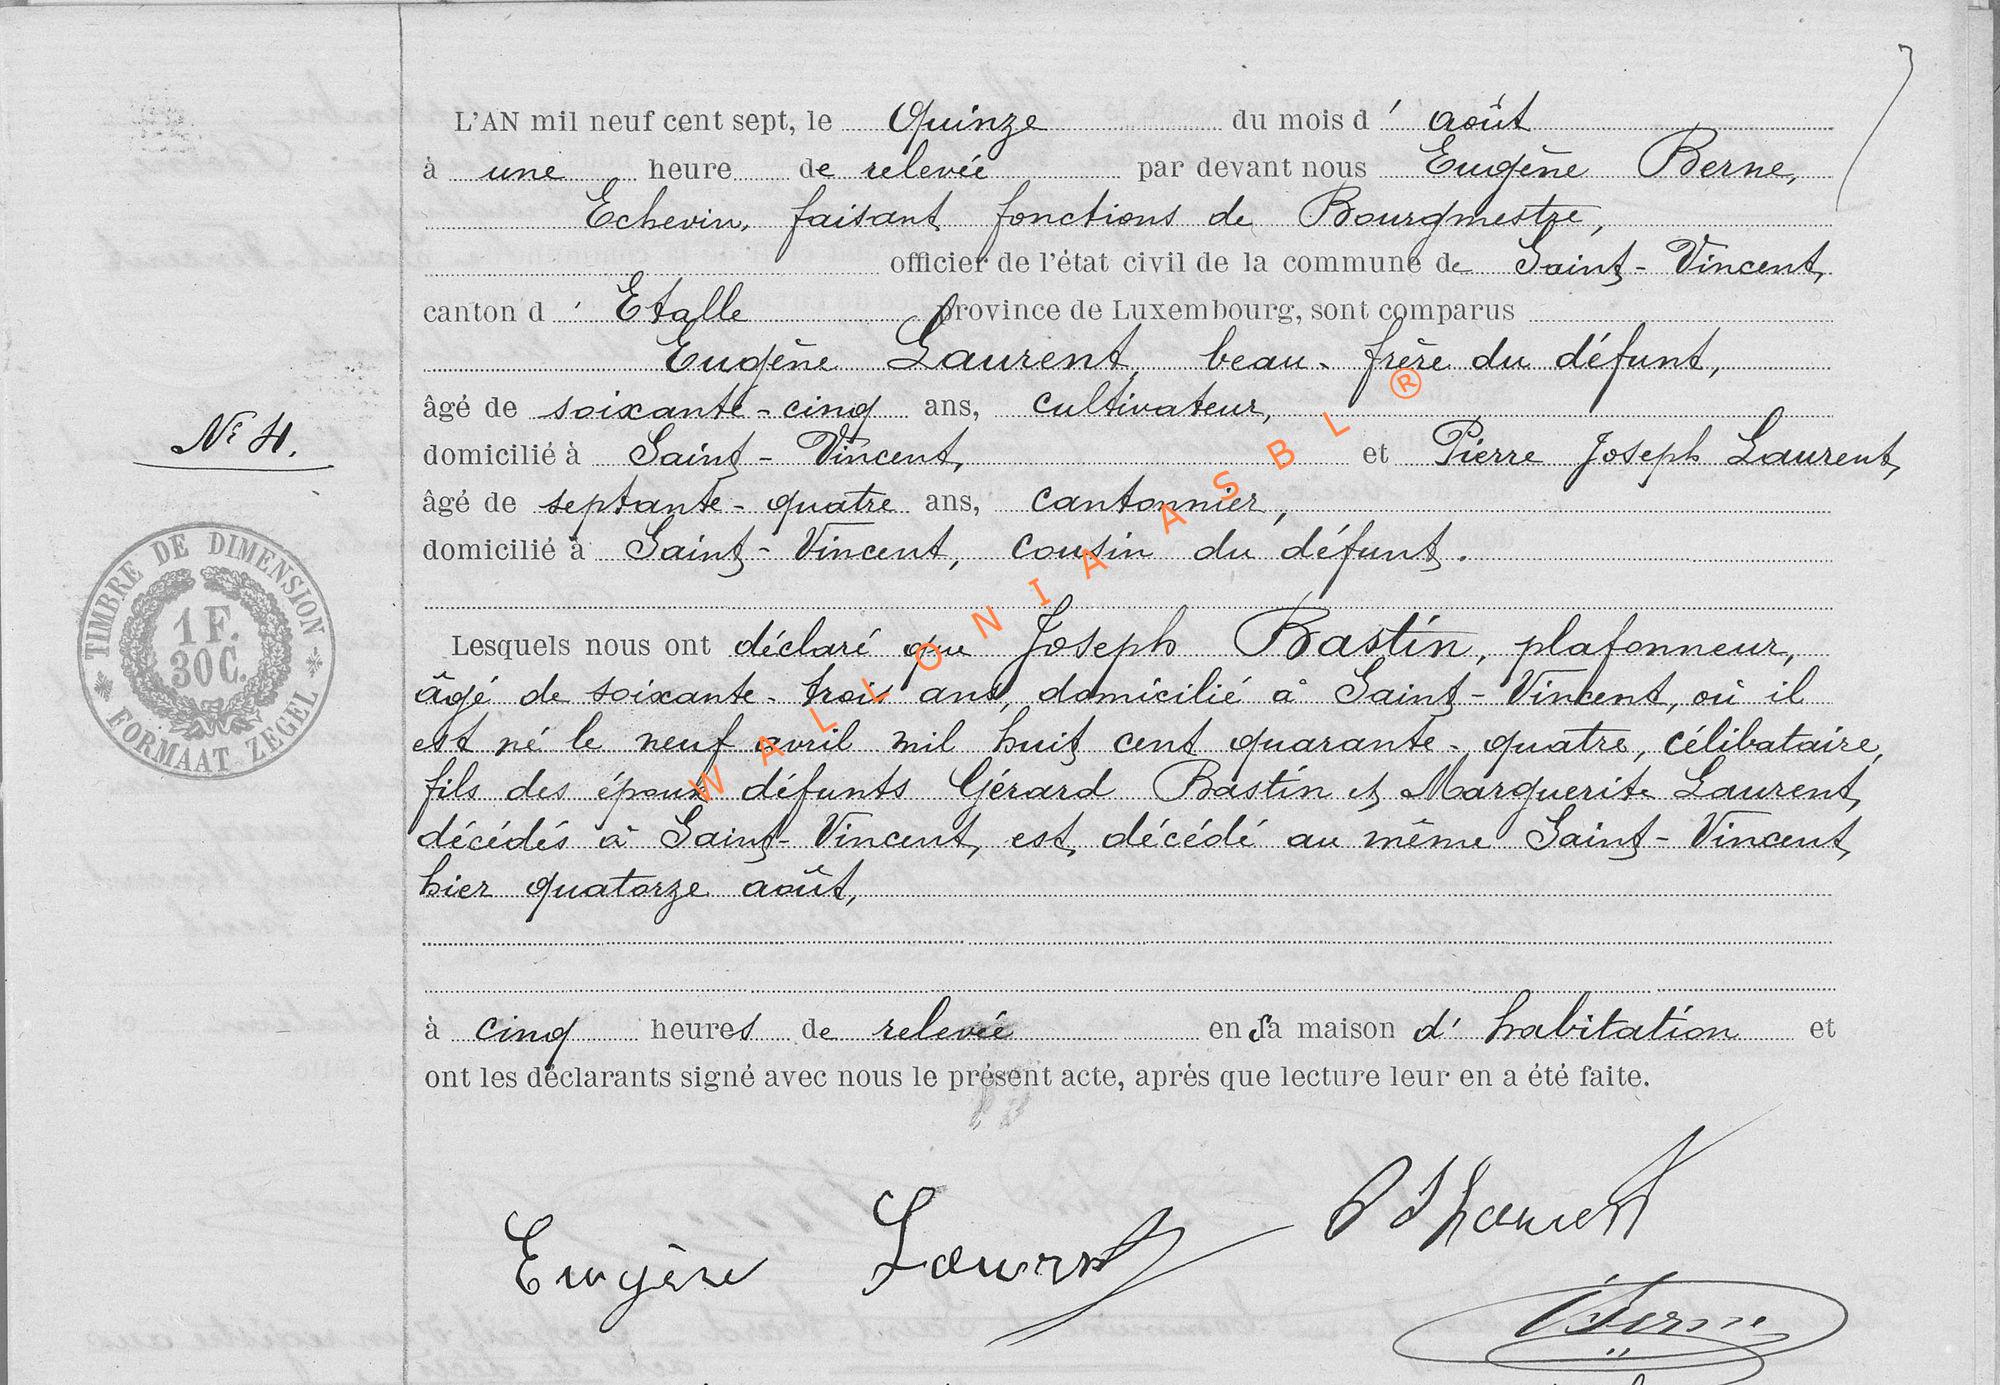 L'AN mil neuf cent sept, le Quinze du mois d' août
à une heure de relevée par devant nous Eugène Berne,
Echevin, faisant fonctions de Bourgmestre,
officier de l'état civil de la commune de Saint-Vincent,
canton d' Etalle province de Luxembourg, sont comparus
Eugène Laurent, beau-frère du défunt,
âgé de soixante-cinq ans, cultivateur,
N° 4.
domicilié à Saint-Vincent, et Pierre Joseph Laurent,
âgé de septante-quatre ans, cantonnier,
domicilié à Saint-Vincent, cousin du défunt.
TIMBRE DE DIMENSION
1 F.
30 C.
FORMAAT ZEGEL
Lesquels nous ont déclaré que Joseph Bastin, plafonneur,
âgé de soixante-trois ans, domicilié à Saint-Vincent, où il
est né le neuf avril mil huit cent quarante-quatre, célibataire,
fils des époux défunts Gérard Bastin et Marguerite Laurent,
décédés à Saint-Vincent, est décédé au même Saint-Vincent,
hier quatorze août,
à cinq heures de relevée en sa maison d'habitation et
ont les déclarants signé avec nous le présent acte, après que lecture leur en a été faite.
Eugène Laurent
PJ Laurent
Berne
WALLONIA ASBL ®